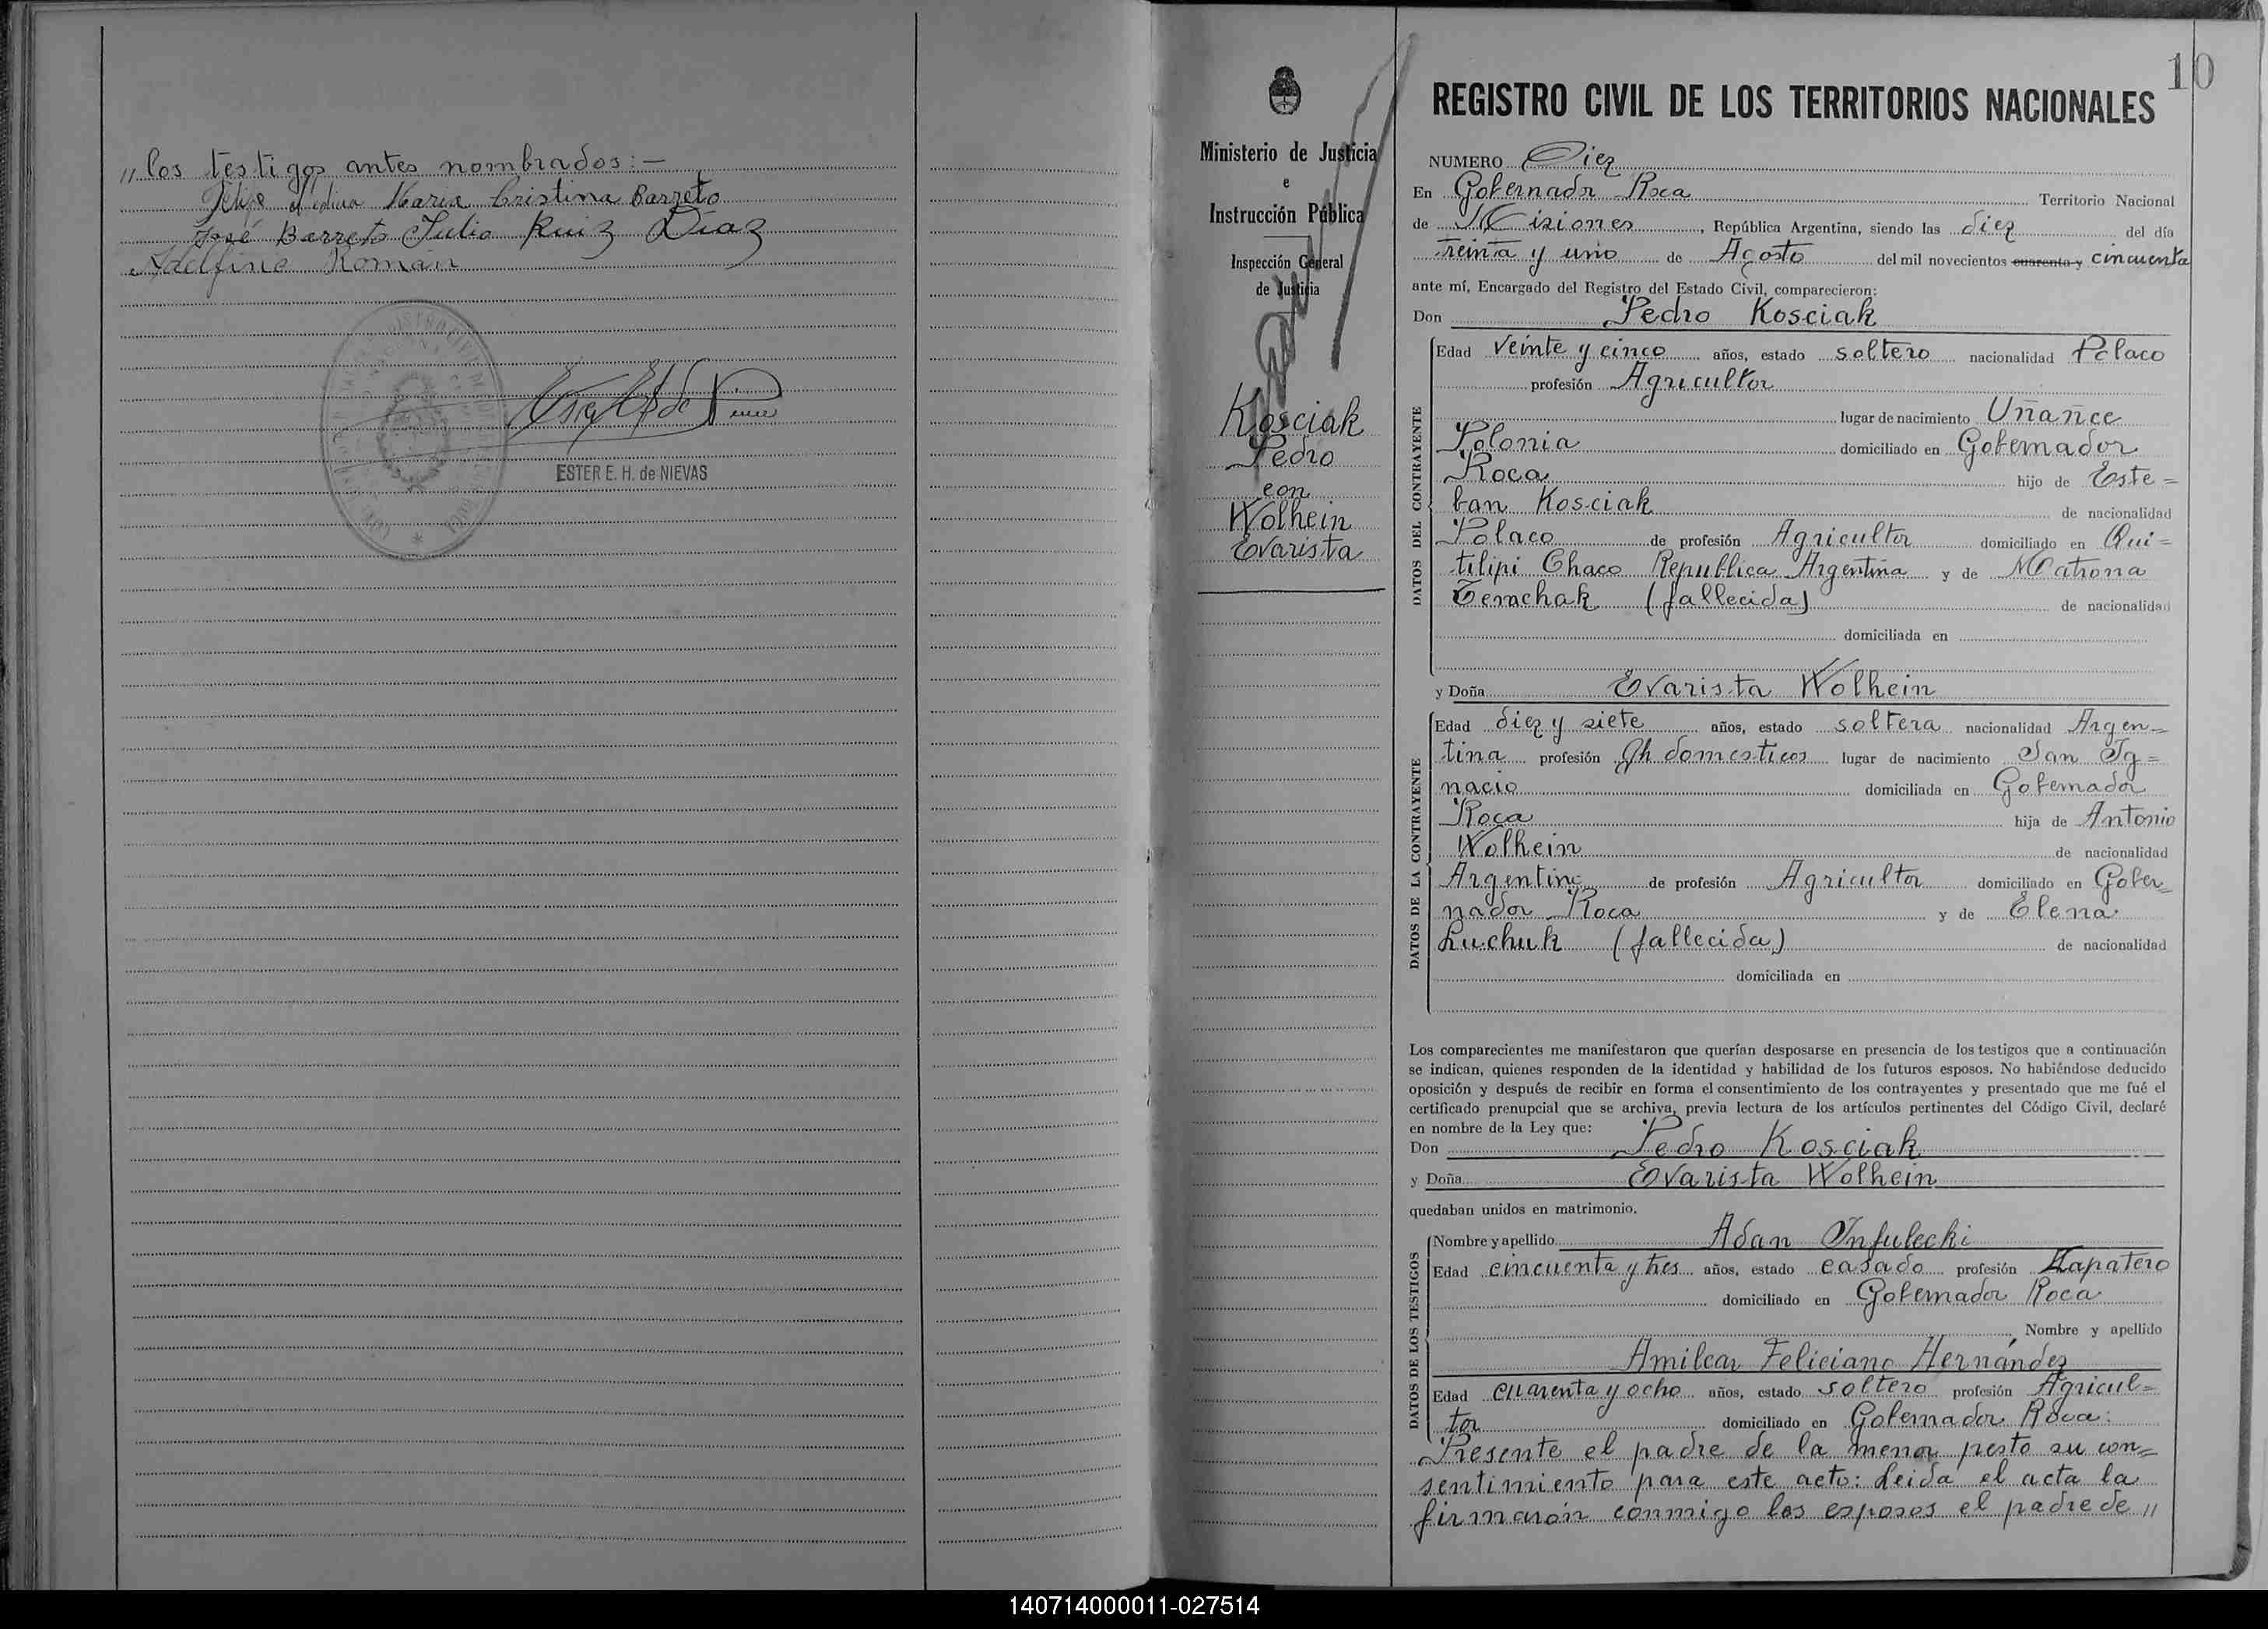 " los testigos antes nombrados: —
Felipe Medina Maria Cristina Barreto
José Barreto Julio Ruiz Diaz
Adelfino Román
ESTER E. H. de NIEVAS
Ministerio de Justicia
e
Instrucción Pública
Inspección General
de Justicia
Kosciak
Pedro
con
Wolhein
Evarista
10
REGISTRO CIVIL DE LOS TERRITORIOS NACIONALES
NUMERO Diez
En Gobernador Roca Territorio Nacional
de Misiones, República Argentina, siendo las diez del día
treinta y uno de Agosto del mil novecientos cuarenta y cincuenta
ante mí, Encargado del Registro del Estado Civil, comparecieron:
Don Pedro Kosciak
DATOS DEL CONTRAYENTE
Edad veinte y cinco años, estado soltero nacionalidad Polaco
profesión Agricultor
lugar de nacimiento Uñañce
Polonia domiciliado en Gobernador
Roca hijo de Este=
ban Kosciak de nacionalidad
Polaco de profesión Agricultor domiciliado en Qui=
tilipi Chaco Republica Argentina y de Matrona
Temchak (fallecida) de nacionalidad
domiciliada en
y Doña Evarista Wolhein
DATOS DE LA CONTRAYENTE
Edad diez y siete años, estado soltera nacionalidad Argen=
tina profesión Qh domesticos lugar de nacimiento San Ig=
nacio domiciliada en Gobernador
Roca hija de Antonio
Wolhein de nacionalidad
Argentino de profesión Agricultor domiciliado en Gober=
nador Roca y de Elena
Luchuk (fallecida) de nacionalidad
domiciliada en
Los comparecientes me manifestaron que querían desposarse en presencia de los testigos que a continuación
se indican, quienes responden de la identidad y habilidad de los futuros esposos. No habiéndose deducido
oposición y después de recibir en forma el consentimiento de los contrayentes y presentado que me fué el
certificado prenupcial que se archiva, previa lectura de los artículos pertinentes del Código Civil, declaré
en nombre de la Ley que:
Don Pedro Kosciak
y Doña Evarista Wolhein
quedaban unidos en matrimonio.
DATOS DE LOS TESTIGOS
Nombre y apellido Adan Infulecki
Edad cincuenta y tres años, estado casado profesión Zapatero
domiciliado en Gobernador Roca
Nombre y apellido
Amilcar Feliciano Hernández
Edad cuarenta y ocho años, estado soltero profesión Agricul=
tor domiciliado en Gobernador Roca:
Presente el padre de la menor presto su con=
sentimiento para este acto: Leida el acta la
firmarón conmigo los esposos el padre de "
140714000011-027514